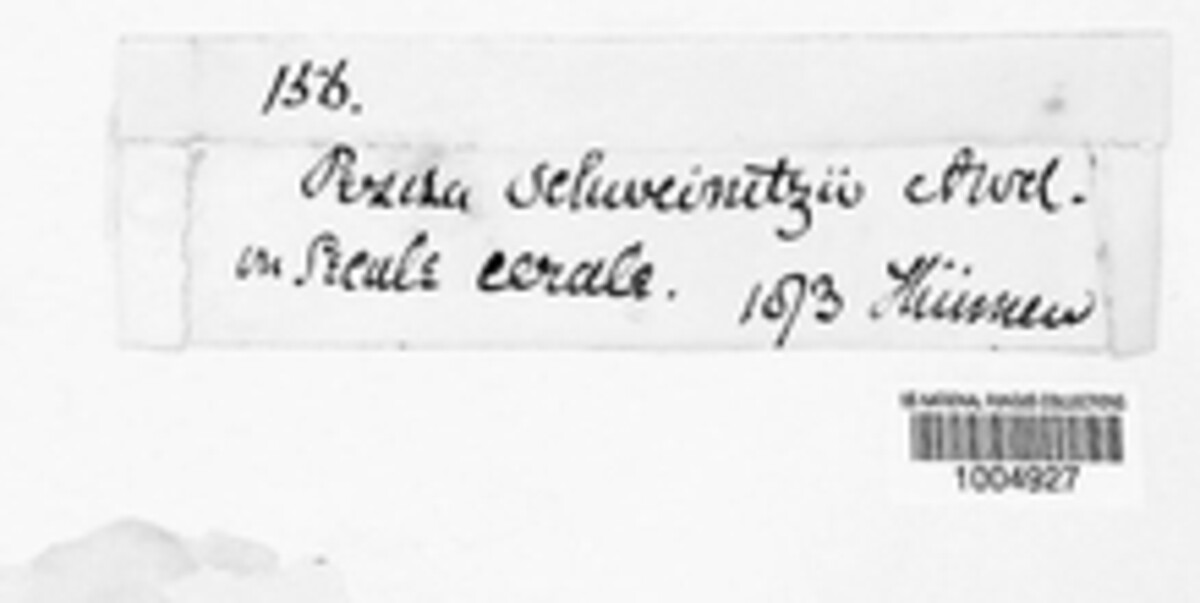 156.
Peziza schweinitzii Awd.
in Secale cerale. 1873 Thümen
US NATIONAL FUNGUS COLLECTIONS
1004927